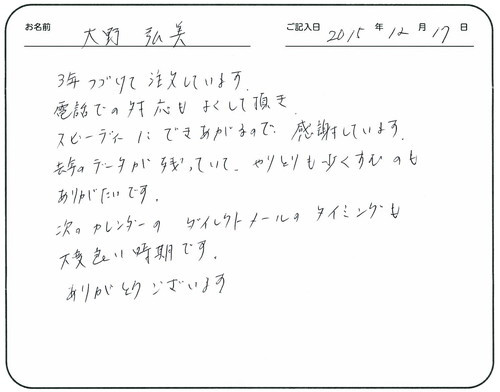 お名前 大野 弘美 ご記入日 2015 年 12 月 17 日
3年つづけて注文しています。
電話での対応もよくして頂き
スピーディーにできあがるので、感謝しています。
去年のデータが残っていて、やりとりも少くすむのも
ありがたいです。
次のカレンダーの ダイレクトメールのタイミングも
大変良い時期です。
ありがとうございます